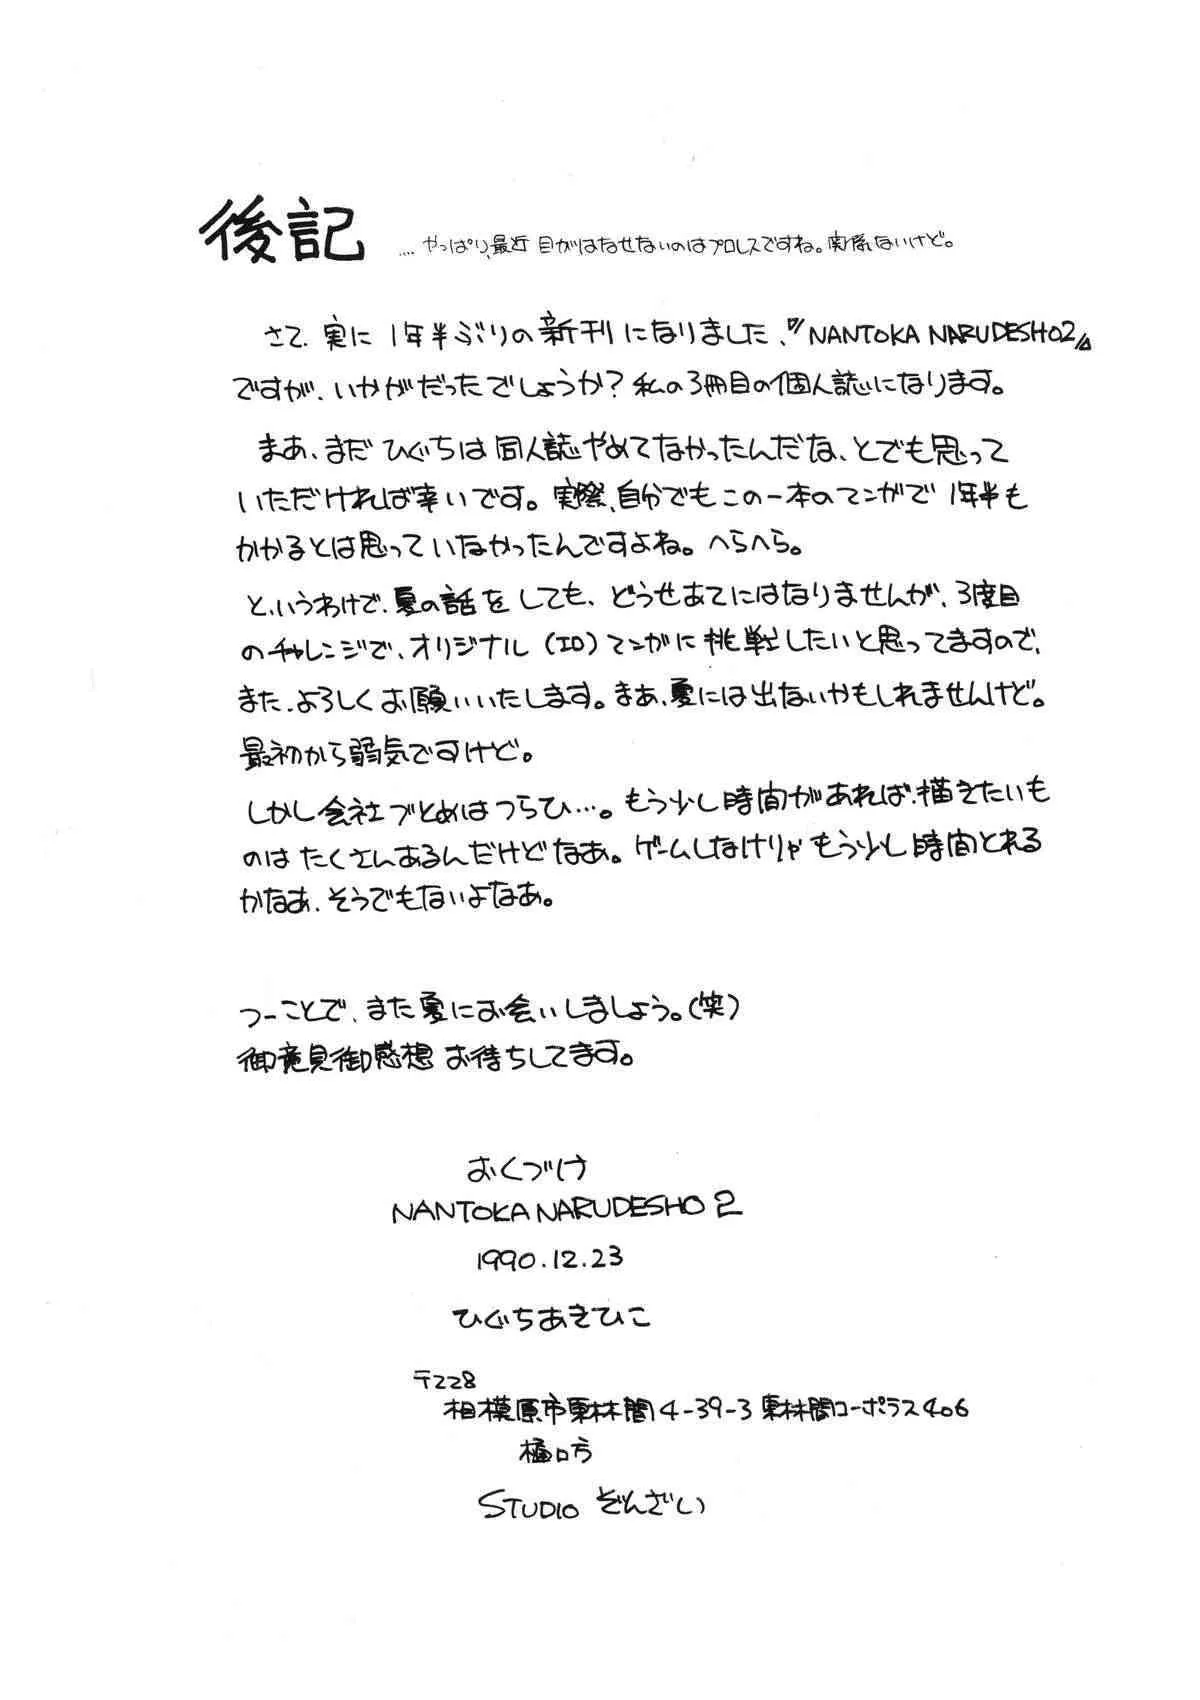 後記 ....やっぱり、最近 目がはなせないのはプロレスですね。関係ないけど。
さて、実に 1年半ぶりの新刊になりました、『NANTOKA NARUDESHO2』
ですが、いかがだったでしょうか？私の3冊目の個人誌になります。
まあ、まだ ひぐちは 同人誌やめてなかったんだな、とでも思って
いただければ幸いです。実際、自分でもこの一本のマンガで 1年半も
かかるとは思っていなかったんですよね。へらへら。
と、いうわけで、夏の話をしても、どうせあてにはなりませんが、3度目
のチャレンジで、オリジナル（エロ）マンガに挑戦したいと思ってますので、
また、よろしくお願いいたします。まあ、夏には出ないかもしれませんけど。
最初から弱気ですけど。
しかし会社づとめはつらひ…。もう少し時間があれば、描きたいも
のはたくさんあるんだけどなあ。ゲームしなけりゃもう少し時間とれる
かなあ、そうでもないよなあ。
つーことで、また夏にお会いしましょう。（笑）
御意見御感想 お待ちしてます。
おくづけ
NANTOKA NARUDESHO 2
1990.12.23
ひぐちあきひこ
〒228
相模原市東林間4-39-3 東林間コーポラス406
樋口方
STUDIO ぞんざい